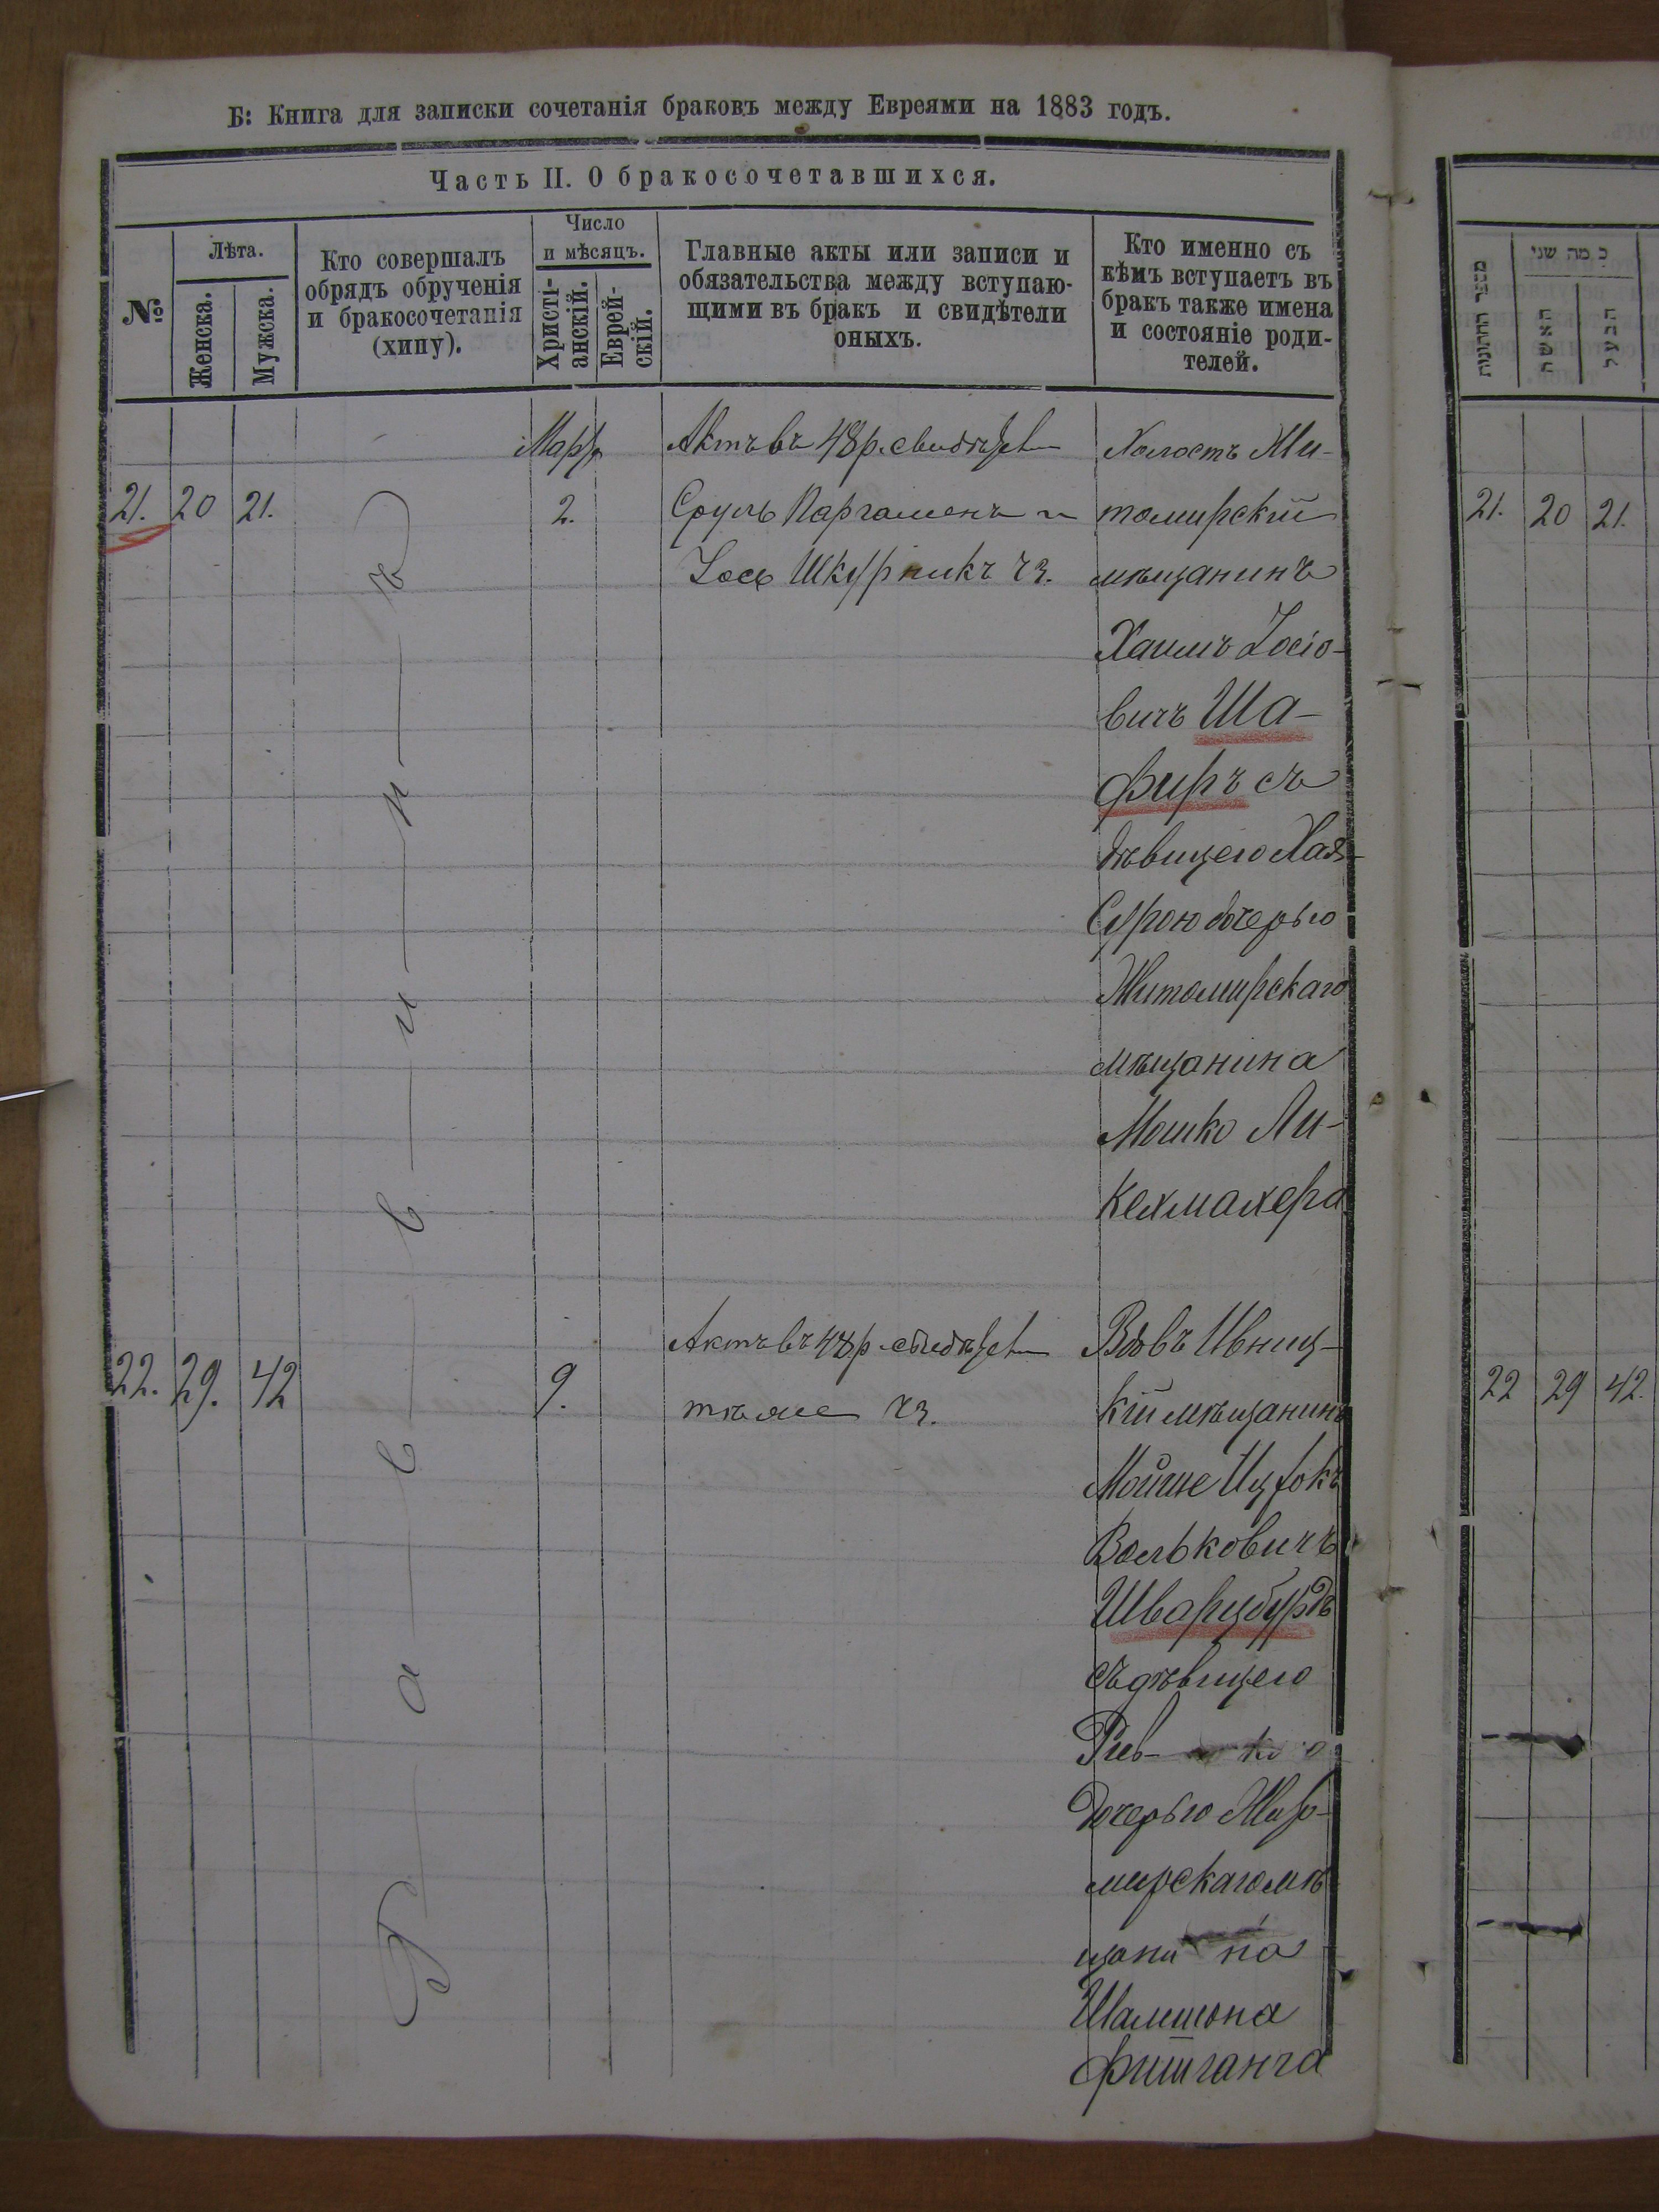 Б: Книга для записки сочетанія браковъ между Евреями на 1883 годъ.
Часть II. О бракосочетавшихся.
№
Лѣта.
Женска.
Мужска.
Кто совершалъ
обрядъ обрученія
и бракосочетанія
(хипу).
Число
и мѣсяцъ.
Христі-
анскій.
Еврей-
скій.
Главные акты или записи и
обязательства между вступаю-
щими въ бракъ и свидѣтели
оныхъ.
Кто именно съ
кѣмъ вступаетъ въ
бракъ также имена
и состояніе роди-
телей.
מספר החתונות
כמה שני
האשה
הבעל
Раввинъ
Мартъ
21. 20 21. 2.
Актъ въ 48 р. свидѣт
Сруль Паргаменъ и
Іось Шкурникъ
Холостъ Жи-
томирскій
мѣщанинъ
Хаимъ Іосіо-
вичъ Ша-
фиръ съ
дѣвицею Хая
Сурою дочерью
Житомирскаго
мѣщанина
Мошко Ли-
кехмахера
22. 29. 42 9.
Актъ въ 48 р. свидѣт
тѣже
Вдовъ Ивниц-
кій мѣщанинъ
Мойше Ицкокъ
Вольковичъ
Шварцбурдъ
съ дѣвицею
дочерью Жито-
мирскаго мѣ
щанина
Шамшона
Фишганга
21. 20 21.
22 29 42.